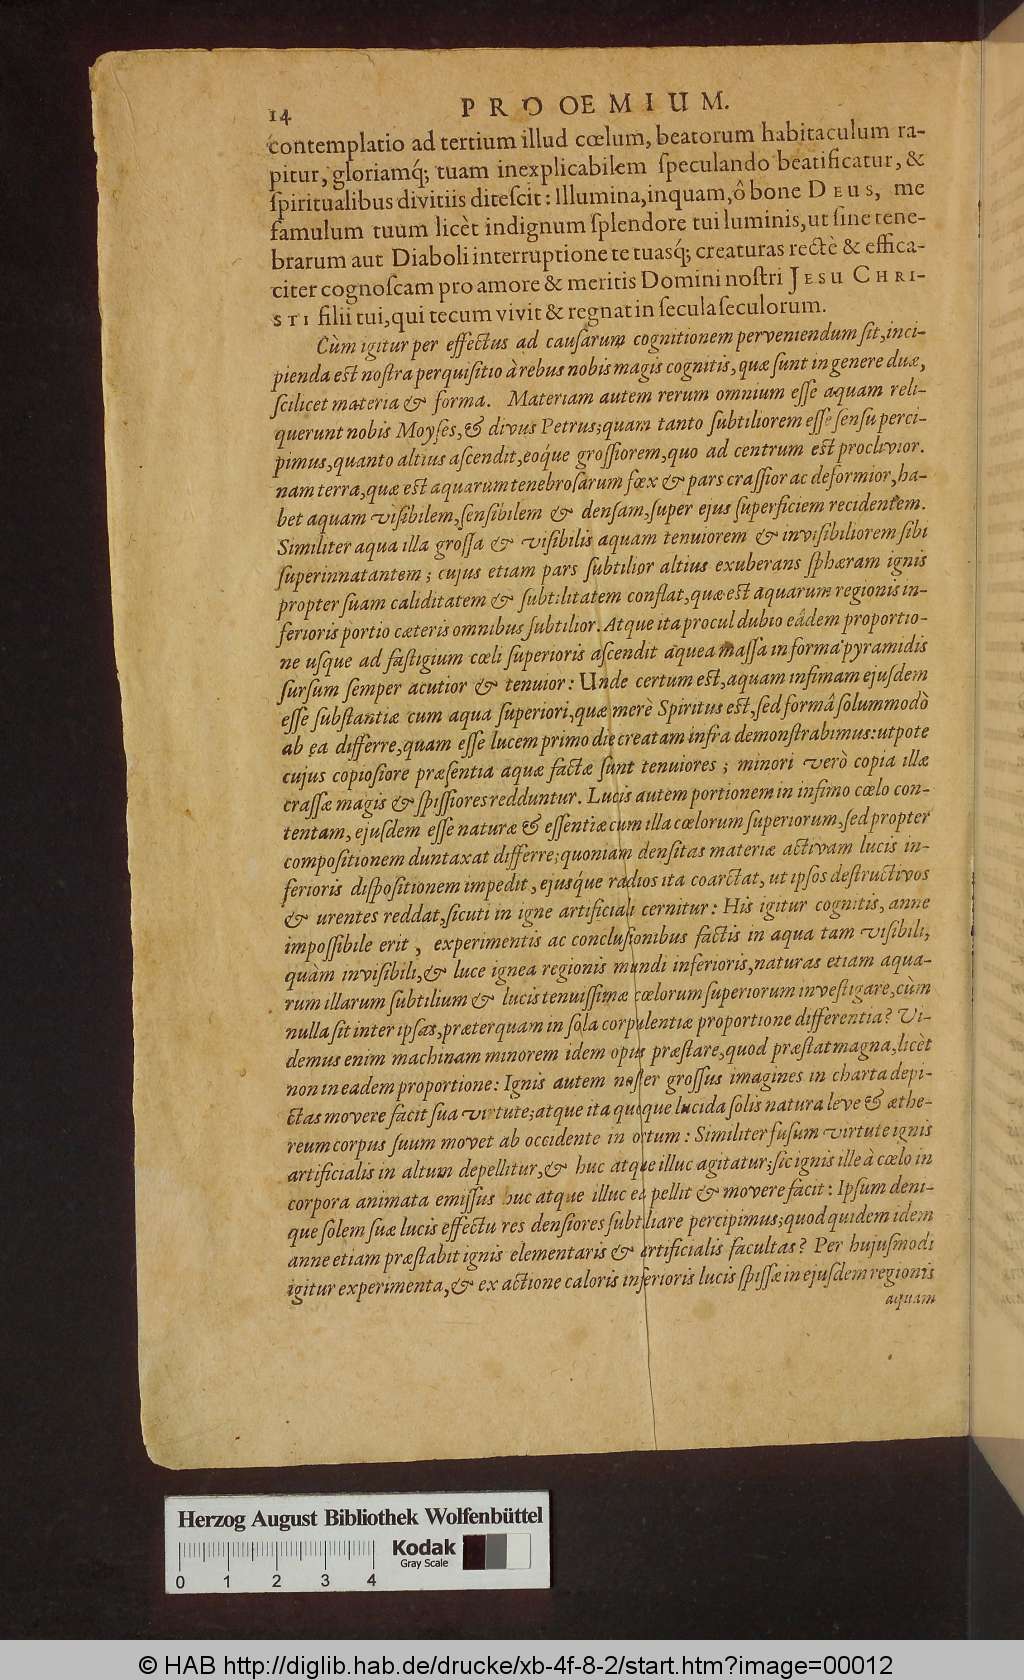 14
PROOEMIUM.
contemplatio ad tertium illud cœlum, beatorum habitaculum ra-
pitur, gloriamq́; tuam inexplicabilem ſpeculando beatificatur, &
ſpiritualibus divitiis diteſcit: Illumina, inquam, ô bone DEUS, me
famulum tuum licèt indignum ſplendore tui luminis, ut ſine tene-
brarum aut Diaboli interruptione te tuasq́; creaturas rectè & effica-
citer cognoſcam pro amore & meritis Domini noſtri JESU CHRI-
STI filii tui, qui tecum vivit & regnat in ſecula ſeculorum.
Cùm igitur per effectus ad cauſarum cognitionem perveniendum ſit, inci-
pienda eſt noſtra perquiſitio à rebus nobis magis cognitis, quæ ſunt in genere duæ,
ſcilicet materia & forma. Materiam autem rerum omnium eſſe aquam reli-
querunt nobis Moyſes, & divus Petrus; quam tanto ſubtiliorem eſſe ſenſu perci-
pimus, quanto altius aſcendit, eoque groſſiorem, quo ad centrum eſt proclivior.
nam terra, quæ eſt aquarum tenebroſarum fœx & pars craſſior ac deformior, ha-
bet aquam viſibilem, ſenſibilem & denſam, ſuper ejus ſuperficiem recidentem.
Similiter aqua illa groſſa & viſibilis aquam tenuiorem & inviſibiliorem ſibi
ſuperinnatantem; cujus etiam pars ſubtilior altius exuberans ſphæram ignis
propter ſuam caliditatem & ſubtilitatem conflat, quæ eſt aquarum regionis in-
ferioris portio cæteris omnibus ſubtilior. Atque ita procul dubio eâdem proportio-
ne uſque ad faſtigium cœli ſuperioris aſcendit aquea maſſa in forma pyramidis
ſurſum ſemper acutior & tenuior: Unde certum eſt, aquam infimam ejuſdem
eſſe ſubſtantiæ cum aqua ſuperiori, quæ merè Spiritus eſt, ſed formâ ſolummodò
ab ea differre, quam eſſe lucem primo die creatam infra demonſtrabimus: utpote
cujus copioſiore præſentia aquæ factæ ſunt tenuiores; minori verò copia illæ
craſſæ magis & ſpiſſiores redduntur. Lucis autem portionem in infimo cœlo con-
tentam, ejuſdem eſſe naturæ & eſſentiæ cum illa cœlorum ſuperiorum, ſed propter
compoſitionem duntaxat differre; quoniam denſitas materiæ activam lucis in-
ferioris diſpoſitionem impedit, ejusq́ue radios ita coarctat, ut ipſos deſtructivos
& urentes reddat, ſicuti in igne artificiali cernitur: His igitur cognitis, anne
impoſſibile erit, experimentis ac concluſionibus factis in aqua tam viſibili,
quàm inviſibili, & luce ignea regionis mundi inferioris, naturas etiam aqua-
rum illarum ſubtilium & lucis tenuiſſimæ cœlorum ſuperiorum inveſtigare, cùm
nulla ſit inter ipſas, præterquam in ſola corpulentiæ proportione differentia? Vi-
demus enim machinam minorem idem opus præſtare, quod præſtat magna, licèt
non in eadem proportione: Ignis autem noſter groſſus imagines in charta depi-
ctas movere facit ſua virtute; atque ita quoque lucida ſolis natura leve & æthe-
reum corpus ſuum movet ab occidente in ortum: Similiter fuſum virtute ignis
artificialis in altum depellitur, & huc atque illuc agitatur; ſic ignis ille à cœlo in
corpora animata emiſſus huc atque illuc ea pellit & movere facit: Ipſum deni-
que ſolem ſuæ lucis effectu res denſiores ſubtiliare percipimus; quod quidem idem
anne etiam præſtabit ignis elementaris & artificialis facultas? Per hujuſmodi
igitur experimenta, & ex actione caloris inferioris lucis ſpiſſæ in ejuſdem regionis
aquam
Herzog August Bibliothek Wolfenbüttel
Kodak
Gray Scale
0 1 2 3 4
© HAB http://diglib.hab.de/drucke/xb-4f-8-2/start.htm?image=00012